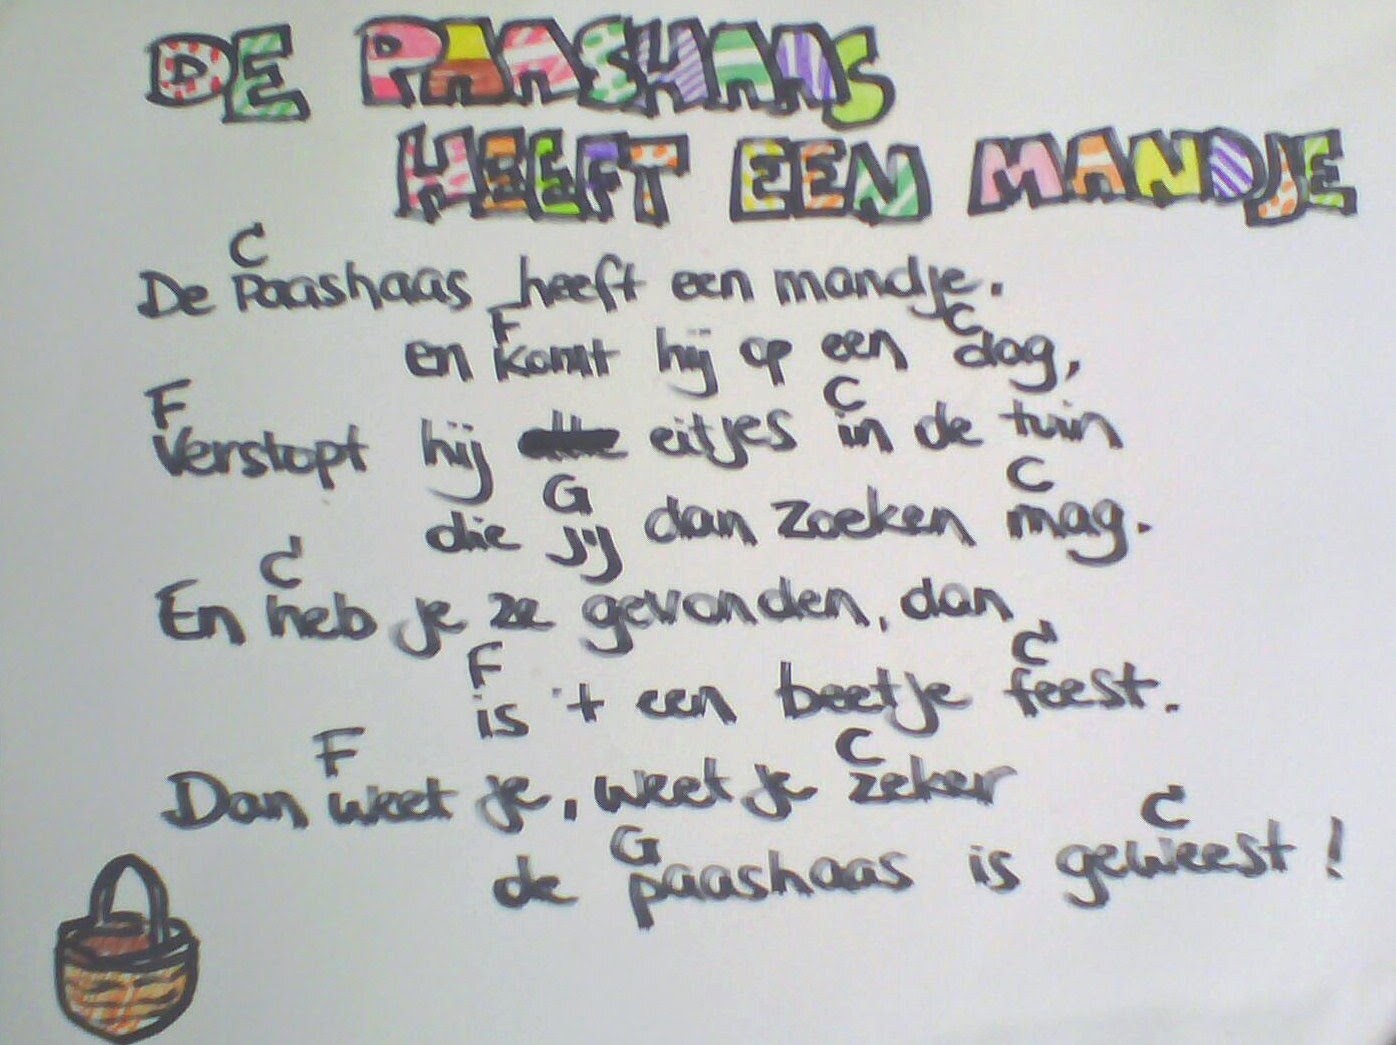 DE PAASHAAS
HEEFT EEN MANDJE
C
De Paashaas heeft een mandje.
F C
en komt hij op een dag,
F C
Verstopt hij eitjes in de tuin
G C
die jij dan zoeken mag.
C
En heb je ze gevonden, dan
F C
is 't een beetje feest.
F C
Dan weet je, weet je zeker
G C
de paashaas is geweest!